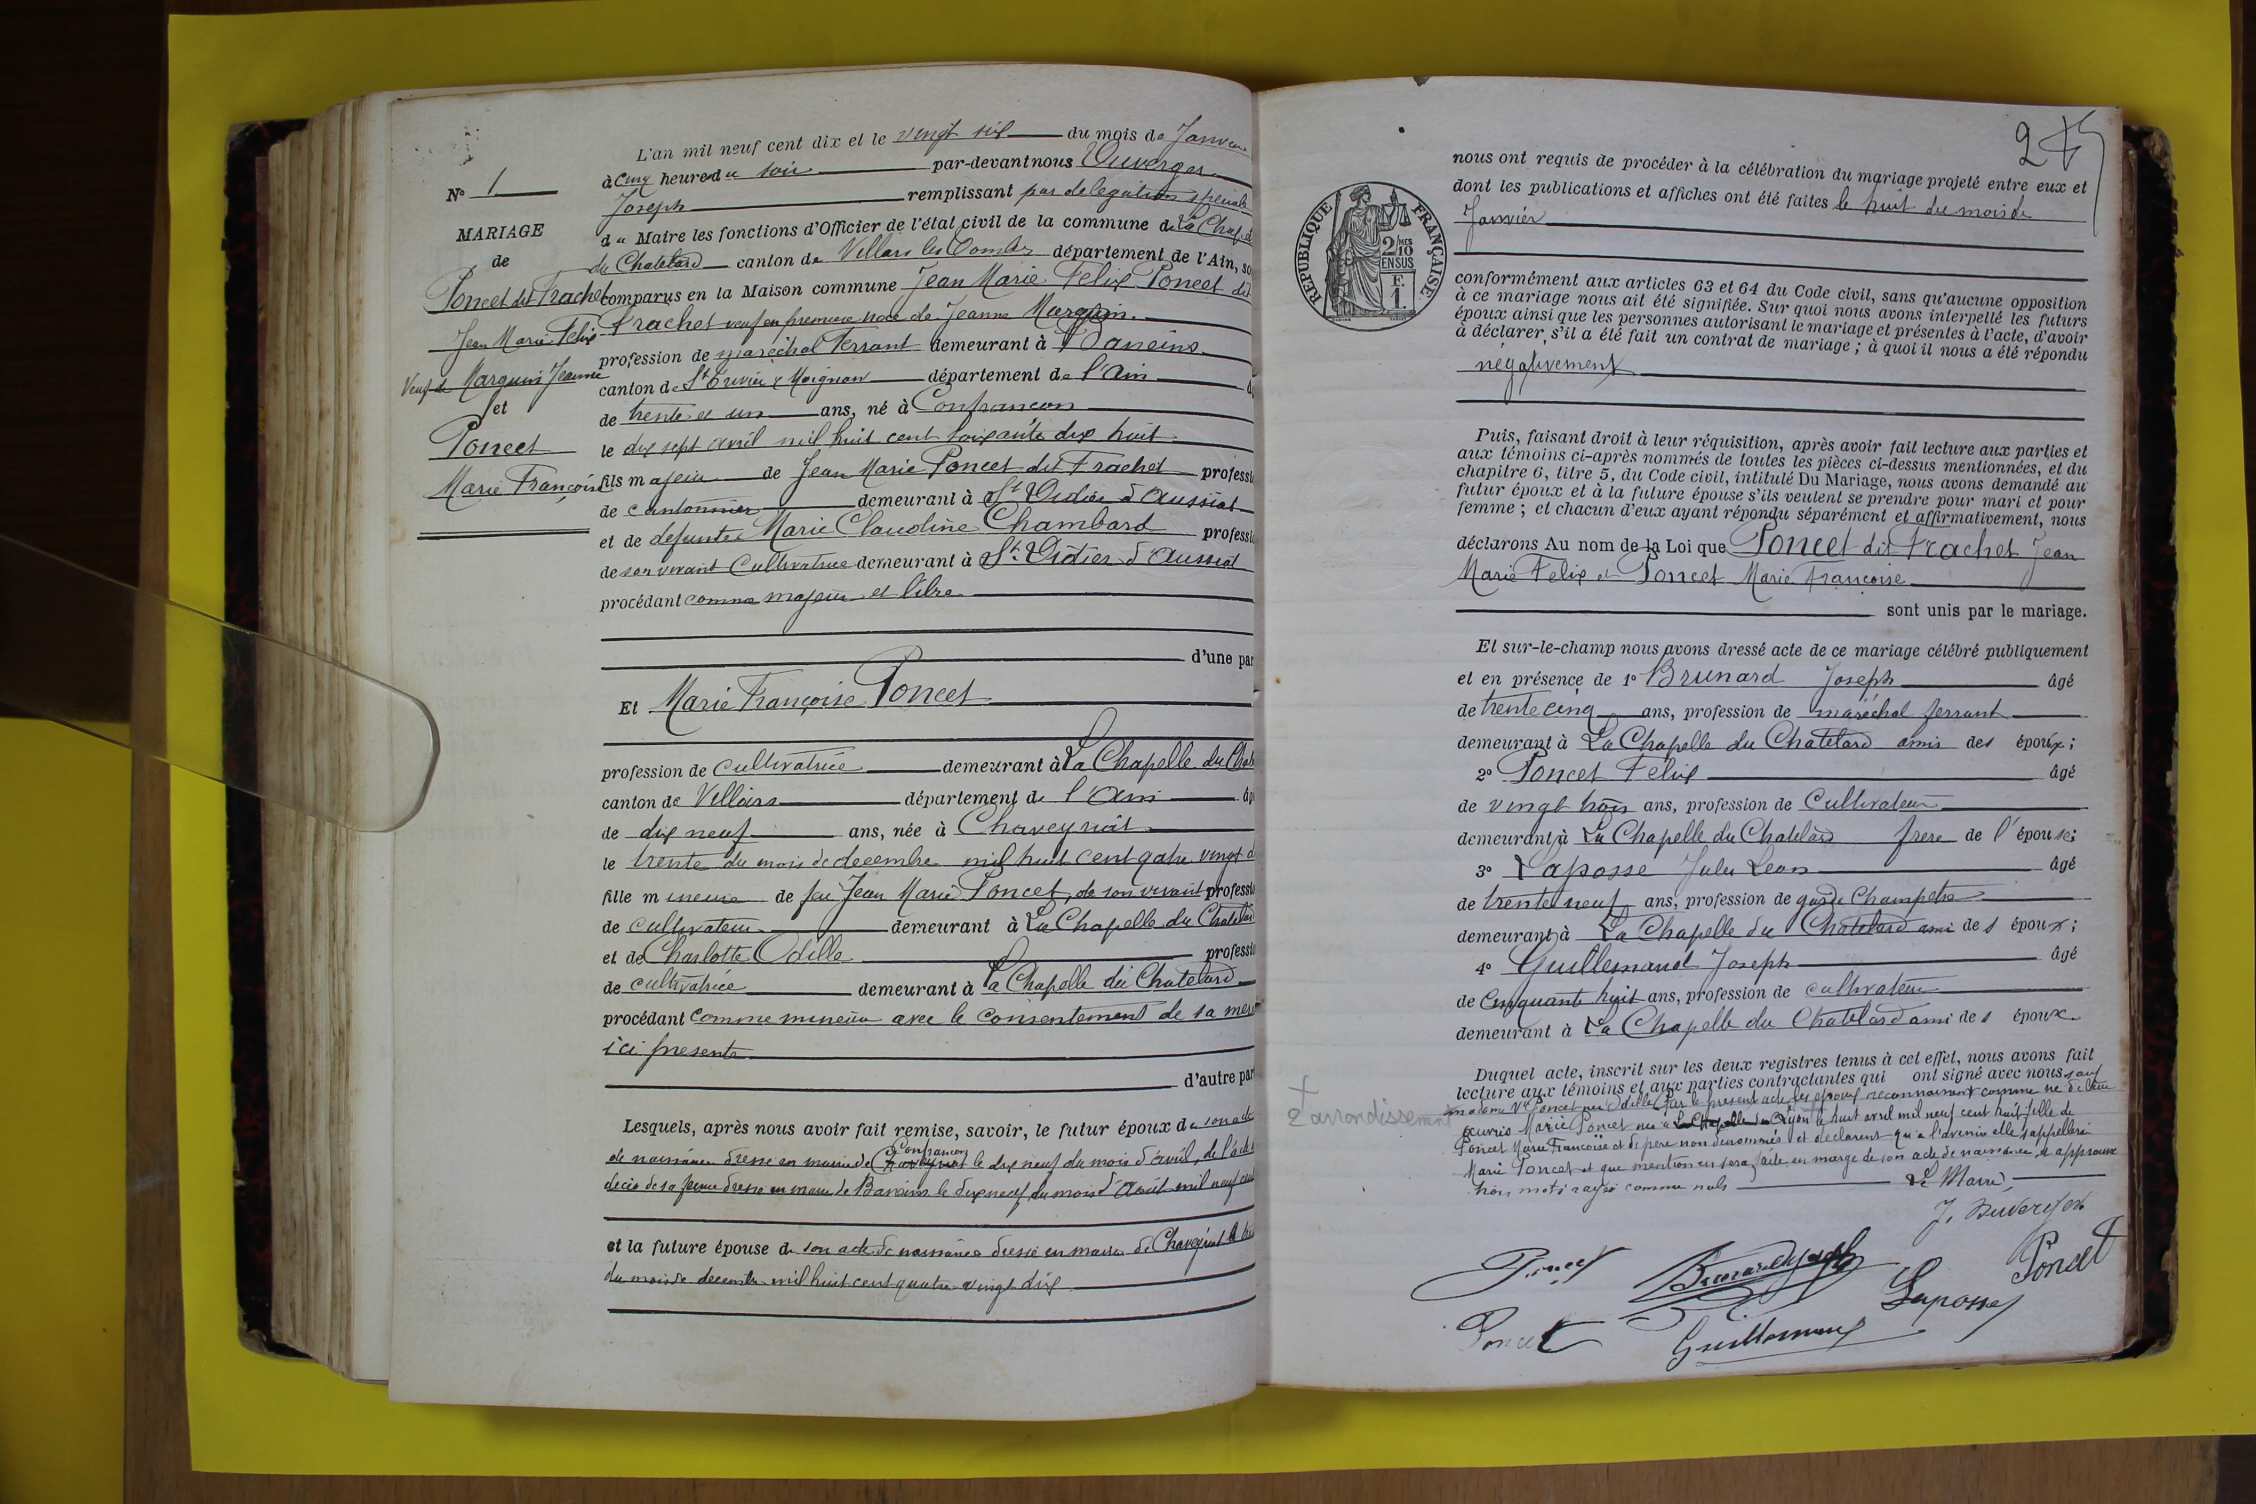 N° 1
MARIAGE
de
Poncet dit Frachet
Jean Marie Felix
Veuf de Marguin Jeanne
et
Poncet
Marie Françoise
L'an mil neuf cent dix et le vingt six du mois de Janvier
à Cinq heures du soir par-devant nous Duvernay
Joseph remplissant par délégation spéciale
du Maire les fonctions d'Officier de l'état civil de la commune de La Chapelle
du Chatelard canton de Villars les Dombes département de l'Ain, so
comparus en la Maison commune Jean Marie Felix Poncet dit
Frachet veuf en première noce de Jeanne Marguin.
profession de maréchal ferrant demeurant à Baneins
canton de St Trivier s/ Moignans département de l'Ain
de trente et un ans, né à Confrançon
le dix sept avril mil huit cent soixante dix huit
fils majeur de Jean Marie Poncet dit Frachet professi
de cantonnier demeurant à St Didier d'Aussiat
et de defunte Marie Claudine Chambard professi
de son vivant Cultivatrice demeurant à St Didier d'Aussiat
procédant comme majeur et libre
d'une par
Et Marie Françoise Poncet
profession de cultivatrice demeurant à La Chapelle du Chat
canton de Villars département de l'Ain âg
de dix neuf ans, née à Chaveyriat
le trente du mois de decembre mil huit cent qatre vingt d
fille mineure de feu Jean Marie Poncet, de son vivant professi
de cultivateur demeurant à La Chapelle du Chatelar
et de Charlotte Odille professi
de cultivatrice demeurant à La Chapelle du Chatelard
procédant comme mineure avec le consentement de sa mere
ici presente
d'autre par
Lesquels, après nous avoir fait remise, savoir, le futur époux de son acte
Confrançon
de naissance dressé en mairie de Chaveyriat le dix neuf du mois d'avril, de l'acte
décès de sa femme dressé en mairie de Baneins le dix neuf du mois d'Août mil neuf cent
et la future épouse de son acte de naissance dressé en mairie de Chaveyriat le tre
du mois de decembre mil huit cent quatre-vingt dix
2
RÉPUBLIQUE FRANÇAISE
2/10 MES
EN SUS
F.
1.
nous ont requis de procéder à la célébration du mariage projeté entre eux et
dont les publications et affiches ont été faites le huit du mois de
Janvier
conformément aux articles 63 et 64 du Code civil, sans qu'aucune opposition
à ce mariage nous ait été signifiée. Sur quoi nous avons interpellé les futurs
époux ainsi que les personnes autorisant le mariage et présentes à l'acte, d'avoir
à déclarer s'il a été fait un contrat de mariage ; à quoi il nous a été répondu
négativement
Puis, faisant droit à leur réquisition, après avoir fait lecture aux parties et
aux témoins ci-après nommés de toutes les pièces ci-dessus mentionnées, et du
chapitre 6, titre 5, du Code civil, intitulé Du Mariage, nous avons demandé au
futur époux et à la future épouse s'ils veulent se prendre pour mari et pour
femme ; et chacun d'eux ayant répondu séparément et affirmativement, nous
déclarons Au nom de la Loi que Poncet dit Frachet Jean
Marie Felix et Poncet Marie Françoise
sont unis par le mariage.
Et sur-le-champ nous avons dressé acte de ce mariage célébré publiquement
et en présence de 1° Brunard Joseph âgé
de trente cinq ans, profession de maréchal ferrant
demeurant à La Chapelle du Chatelard amis des époux ;
2° Poncet Felix âgé
de vingt trois ans, profession de Cultivateur
demeurant à La Chapelle du Chatelard frere de l'épouse ;
3° Laposse Jules Leon âgé
de trente neuf ans, profession de garde Champetre
demeurant à La Chapelle du Chatelard ami des époux ;
4° Guillemaud Joseph âgé
de Cinquante huit ans, profession de cultivateur
demeurant à La Chapelle du Chatelard ami des époux.
Duquel acte, inscrit sur les deux registres tenus à cet effet, nous avons fait
lecture aux témoins et aux parties contractantes qui ont signé avec nous sauf
madame Ve Poncet née Odille Par le présent acte les époux reconnaissent comme né de leur
œuvres Marie Poncet née à La Chapelle du Lyon le huit avril mil neuf cent huit fille de
Poncet Marie Françoise et de père non dénommés et déclarent qu'a l'avenir elle s'appellera
Marie Poncet et que mention en sera faite en marge de son acte de naissance, et approuve
trois mots rayés comme nuls Le Maire,
2e arrondissement
J. Duvernay
Poncet
Brunard Joseph
Laposse
Poncet
Poncet
Guillemaud